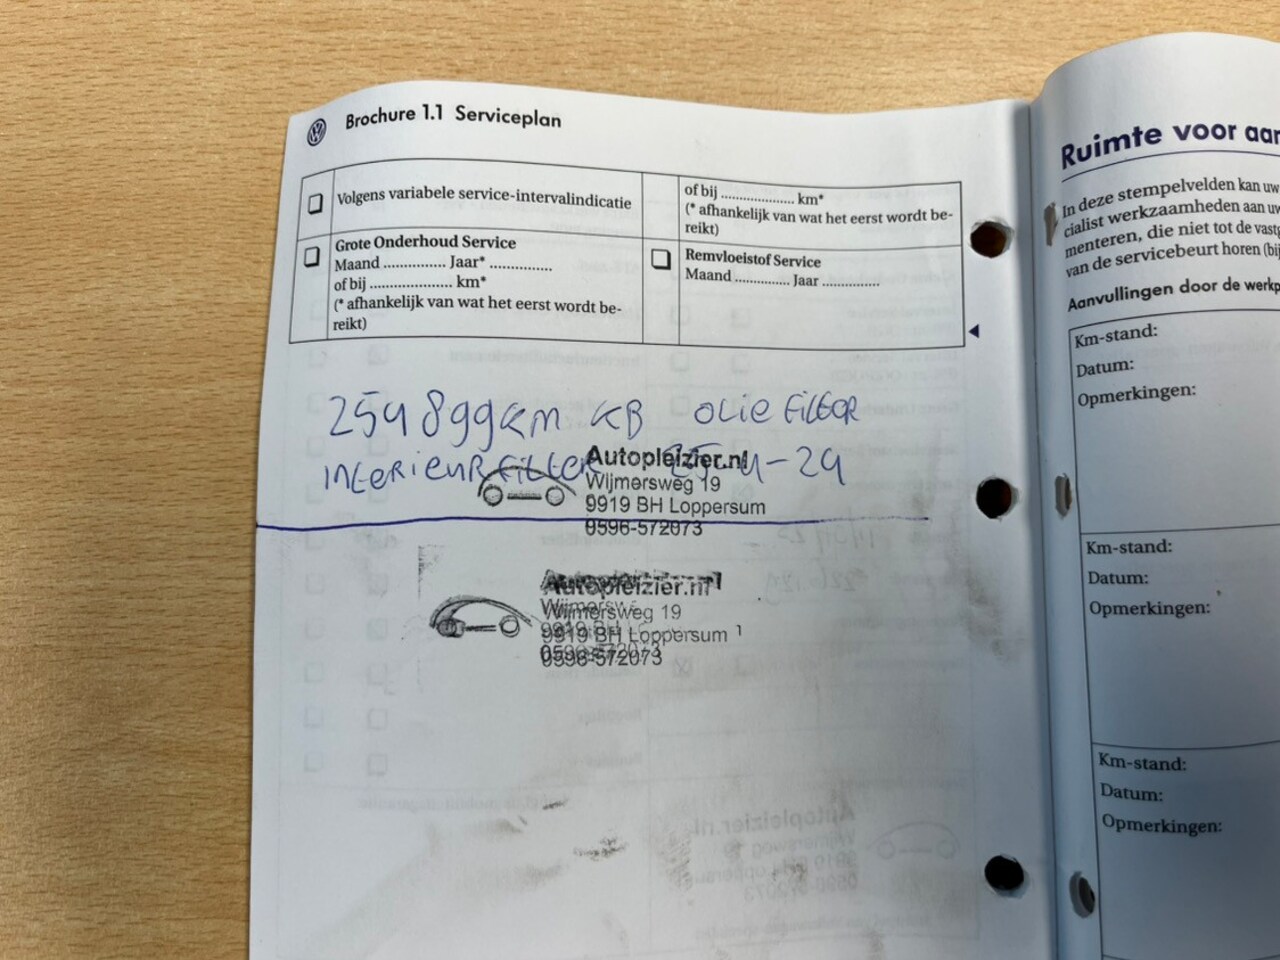 Brochure 1.1 Serviceplan
Volgens variabele service-intervalindicatie
Grote Onderhoud Service
Maand .............. Jaar* ..............
of bij .................... km*
(* afhankelijk van wat het eerst wordt be-
reikt)
of bij .................... km*
(* afhankelijk van wat het eerst wordt be-
reikt)
Remvloeistof Service
Maand .............. Jaar ..............
254899km KB olie Filter
interieur Filter
Autopleizier.nl
Wijmersweg 19
9919 BH Loppersum
0596-572073
Autopleizier.nl
Wijmersweg 19
9919 BH Loppersum
0596-572073
Ruimte voor aan
In deze stempelvelden kan uw
cialist werkzaamheden aan uw
menteren, die niet tot de vastg
van de servicebeurt horen (bij
Aanvullingen door de werkp
Km-stand:
Datum:
Opmerkingen:
Km-stand:
Datum:
Opmerkingen:
Km-stand:
Datum:
Opmerkingen: